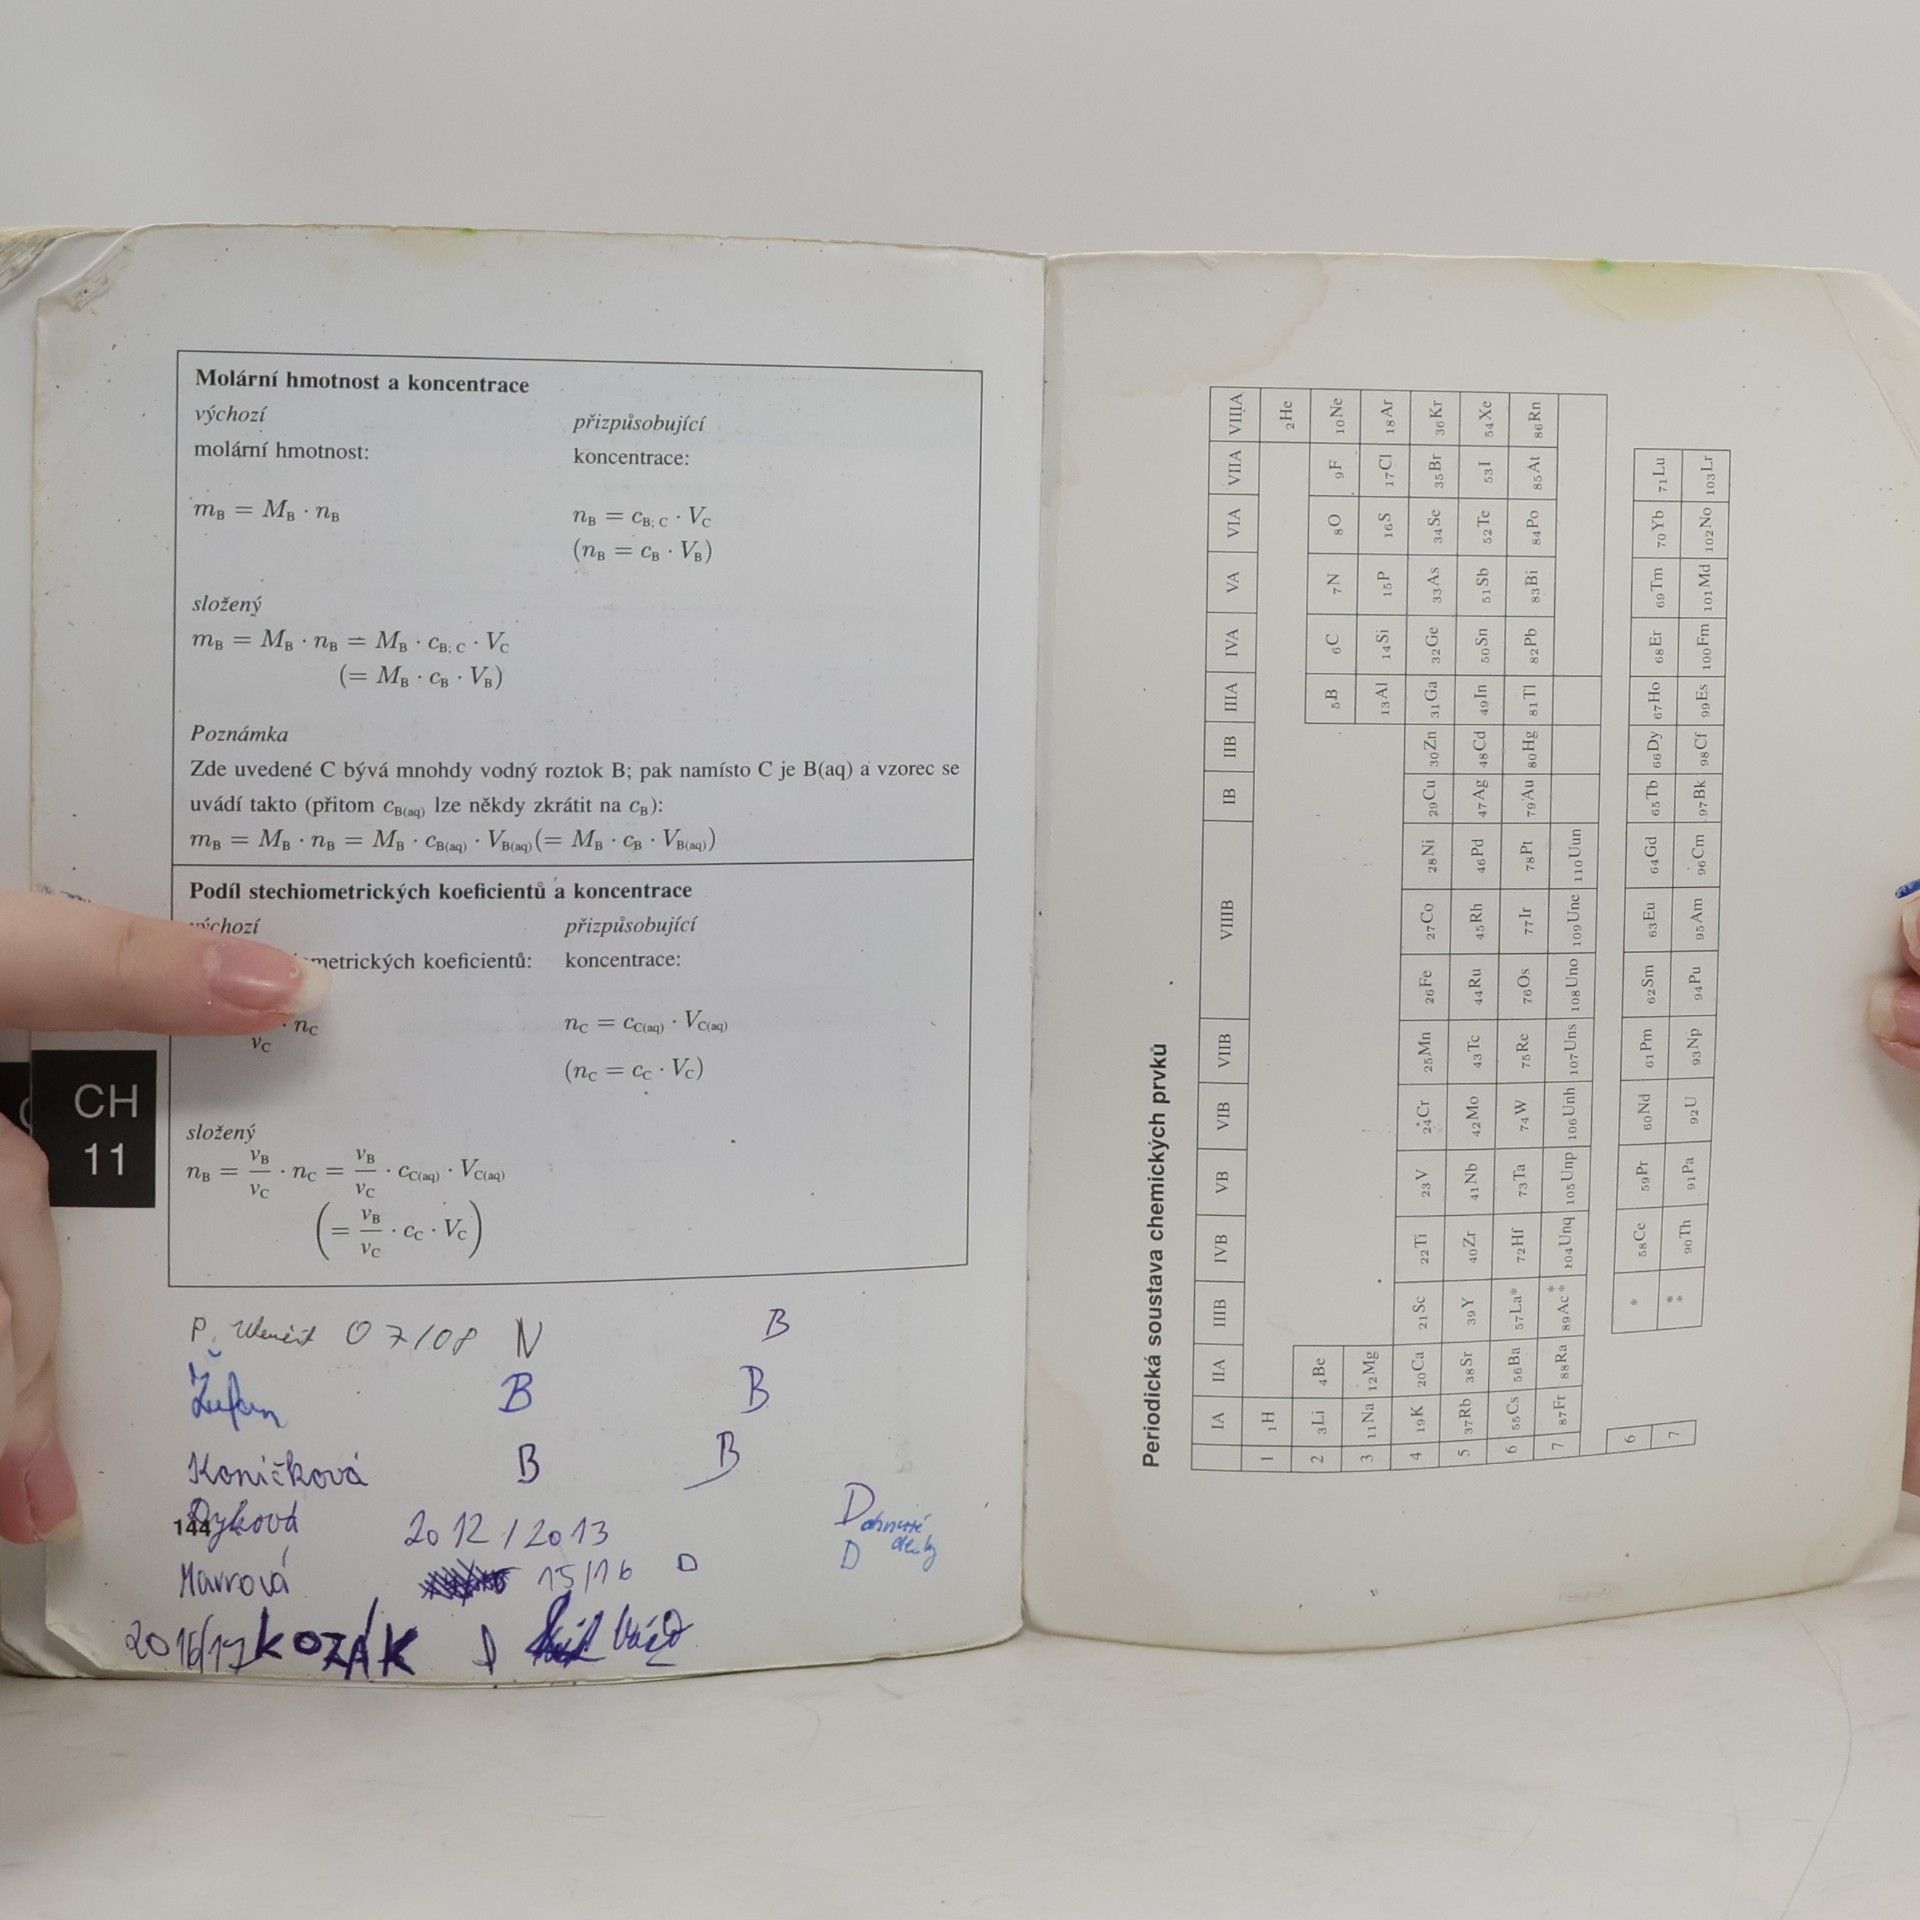 Molární hmotnost a koncentrace
výchozí přizpůsobující
molární hmotnost: koncentrace:
m_B = M_B · n_B n_B = c_B; C · V_C
(n_B = c_B · V_B)
složený
m_B = M_B · n_B = M_B · c_B; C · V_C
(= M_B · c_B · V_B)
Poznámka
Zde uvedené C bývá mnohdy vodný roztok B; pak namísto C je B(aq) a vzorec se
uvádí takto (přitom c_B(aq) lze někdy zkrátit na c_B):
m_B = M_B · n_B = M_B · c_B(aq) · V_B(aq) (= M_B · c_B · V_B(aq))
Podíl stechiometrických koeficientů a koncentrace
výchozí přizpůsobující
koeficientů: koncentrace:
· n_C n_C = c_C(aq) · V_C(aq)
ν_C
(n_C = c_C · V_C)
CH
11
složený
n_B = ν_B/ν_C · n_C = ν_B/ν_C · c_C(aq) · V_C(aq)
(= ν_B/ν_C · c_C · V_C)
P. 07/08 N B
B B
Koníčková B B
144 Dyková 2012/2013 D
Mavrová 15/16 D D
2016/17 KOZÁK
Periodická soustava chemických prvků
IA IIA IIIB IVB VB VIB VIIB VIIIB IB IIB IIIA IVA VA VIA VIIA VIIIA
1 1H 2He
2 3Li 4Be 5B 6C 7N 8O 9F 10Ne
3 11Na 12Mg 13Al 14Si 15P 16S 17Cl 18Ar
4 19K 20Ca 21Sc 22Ti 23V 24Cr 25Mn 26Fe 27Co 28Ni 29Cu 30Zn 31Ga 32Ge 33As 34Se 35Br 36Kr
5 37Rb 38Sr 39Y 40Zr 41Nb 42Mo 43Tc 44Ru 45Rh 46Pd 47Ag 48Cd 49In 50Sn 51Sb 52Te 53I 54Xe
6 55Cs 56Ba 57La* 72Hf 73Ta 74W 75Re 76Os 77Ir 78Pt 79Au 80Hg 81Tl 82Pb 83Bi 84Po 85At 86Rn
7 87Fr 88Ra 89Ac** 104Unq 105Unp 106Unh 107Uns 108Uno 109Une 110Uun
6 * 58Ce 59Pr 60Nd 61Pm 62Sm 63Eu 64Gd 65Tb 66Dy 67Ho 68Er 69Tm 70Yb 71Lu
7 ** 90Th 91Pa 92U 93Np 94Pu 95Am 96Cm 97Bk 98Cf 99Es 100Fm 101Md 102No 103Lr